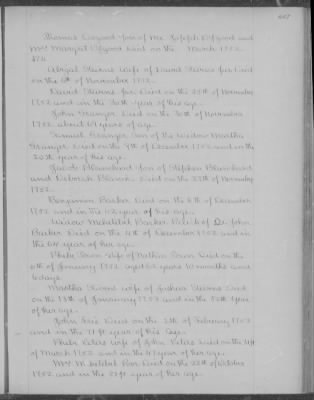 Thomas Osgood Son of Mr. Joseph Osgood and
Mrs Margret Osgood Died on the March 1752.
Abigal Stevens wife of David Stevens Jur. Died
on the 6th of November 1752.
David Stevens Jur. Died on the 25th of November
1752 and in the year of his age.
John Granger Died on the 30th of November
1752. about 69 years of age.
Samuel Granger Son of the widow Martha
Granger Died on the 9th of December 1752 and in the
20th year of his age.
Jacob Blanchard Son of Stephen Blanchard
and Deborah Blanch. Died on the 27th of November
1752.
Benjamin Barker Died on the 8th of December
1752 and in the year of his age.
Widow Mehitibel Barker of Dn. John
Barker Died on the 4th of December 1752 and in
the year of her age.
Phebe Town wife of Nathan Town Died on the
of January 1753 aged years 10 months and
days.
Martha Stevens wife of Joshua Stevens Died
on the 13th of January 1753 and in the year
of her age.
John Frie Died on the of February 1753
and in the 71st year of his age.
Phebe Peters wife of John Peters Died on the
of March 1753 and in the year of her age.
Mrs Mehitibel Poor Died on the 22d of October
1752 and in the year of her age.